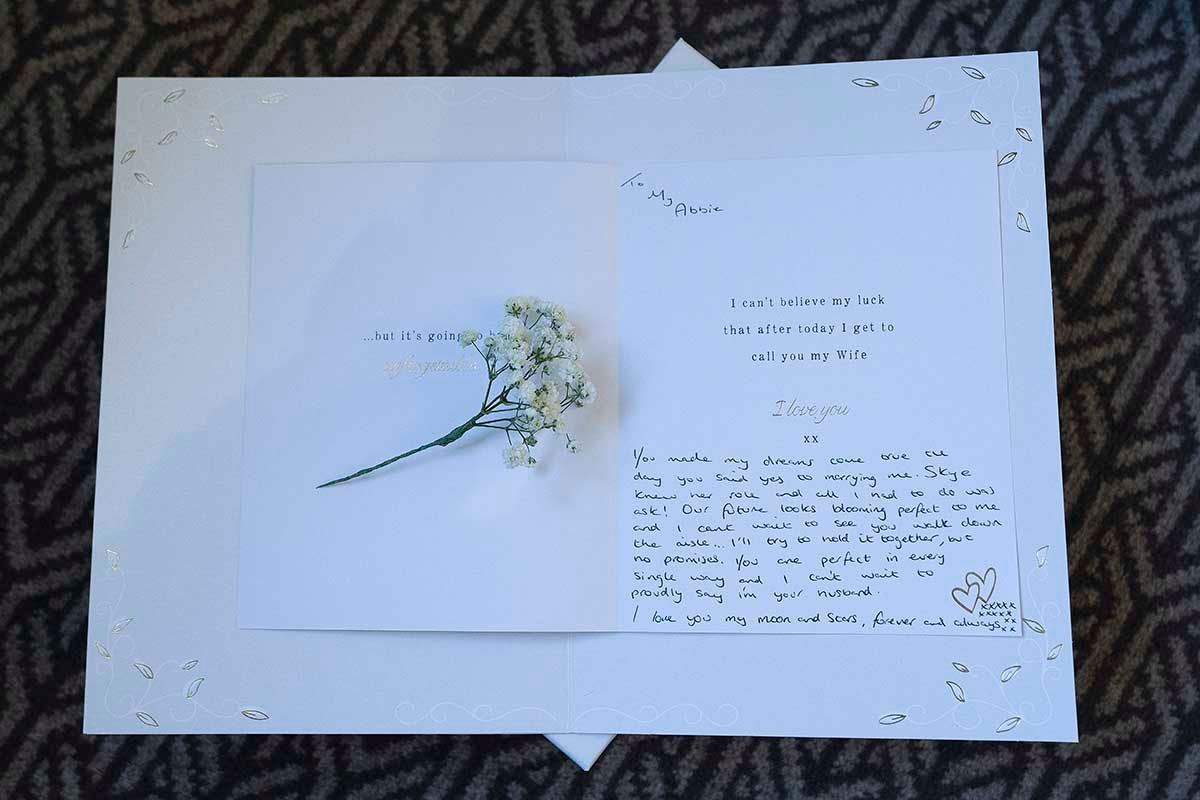 ...but it's going to
To
My
Abbie
I can't believe my luck
that after today I get to
call you my Wife
I love you
xx
You made my dreams come true the
day you said yes to marrying me. Skye
knew her role and all I had to do was
ask! Our future looks blooming perfect to me
and I can't wait to see you walk down
the aisle... I'll try to hold it together, but
no promises. You are perfect in every
single way and I can't wait to
proudly say i'm your husband.
xxxxx
xxxxx
xx
I love you my moon and stars, forever and always
xx